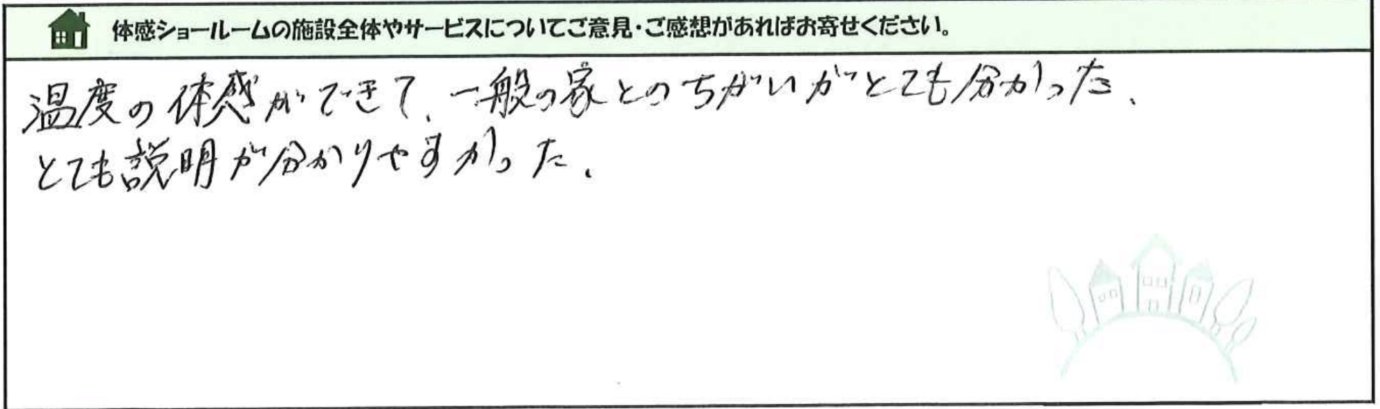 体感ショールームの施設全体やサービスについてご意見・ご感想があればお寄せください。
温度の体感ができて、一般の家とのちがいがとても分かった、
とても説明が分かりやすかった、